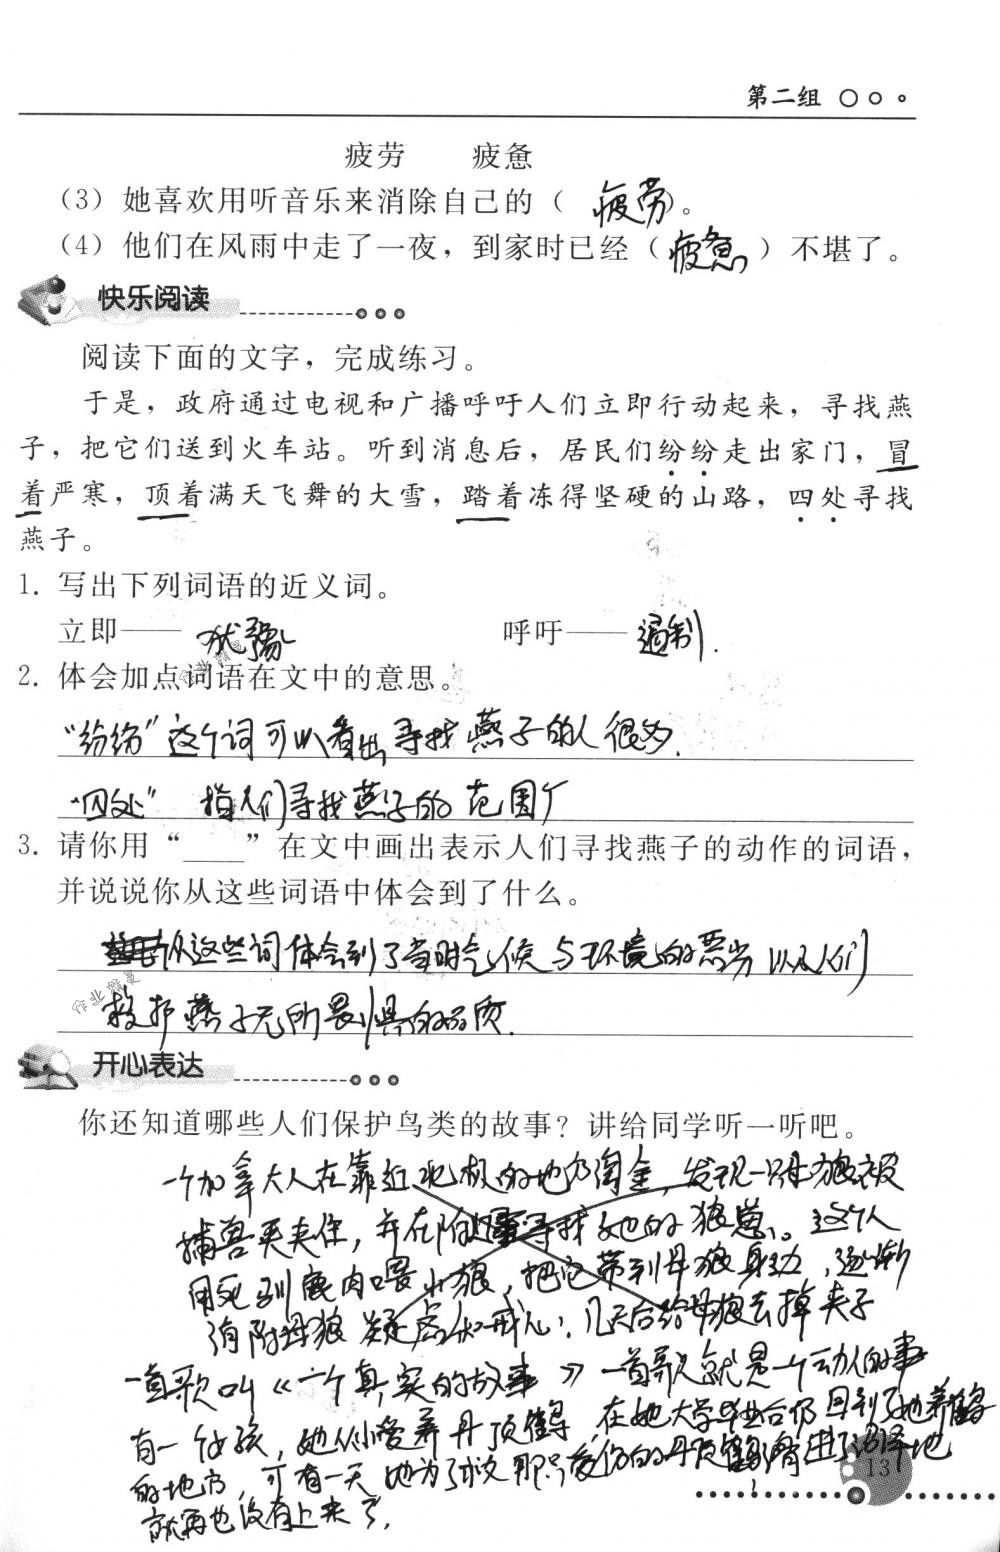 第二组
疲劳 疲惫
（3）她喜欢用听音乐来消除自己的（ 疲劳 。
（4）他们在风雨中走了一夜，到家时已经（ 疲惫 ）不堪了。
快乐阅读
阅读下面的文字，完成练习。
于是，政府通过电视和广播呼吁人们立即行动起来，寻找燕
子，把它们送到火车站。听到消息后，居民们纷纷走出家门，冒
着严寒，顶着满天飞舞的大雪，踏着冻得坚硬的山路，四处寻找
燕子。
1. 写出下列词语的近义词。
立即—— 犹豫 呼吁—— 遏制.
作业精灵
2. 体会加点词语在文中的意思。
“纷纷”这个词可以看出寻找燕子的人很多.
“四处” 指人们寻找燕子的范围广
3. 请你用“____”在文中画出表示人们寻找燕子的动作的词语，
并说说你从这些词语中体会到了什么。
从这些词体会到了当时气候与环境的恶劣以及人们
作业精灵
救护燕子无所畏惧的品质.
开心表达
你还知道哪些人们保护鸟类的故事？讲给同学听一听吧。
一个加拿大人在靠近北极的地方淘金，发现一只母狼被
捕兽夹夹住，并在附近寻找她的狼崽。这个人
用死驯鹿肉喂小狼，把它带到母狼身边，逐渐
消除母狼疑虑和戒心，几天后给母狼去掉夹子
一首歌叫《一个真实的故事》一首歌就是一个动人的事
有一个女孩，她从小爱养丹顶鹤，在她大学毕业后仍回到了她养鹤
的地方，可有一天她为了救那只受伤的丹顶鹤滑进了沼泽地
就再也没有上来了，
13